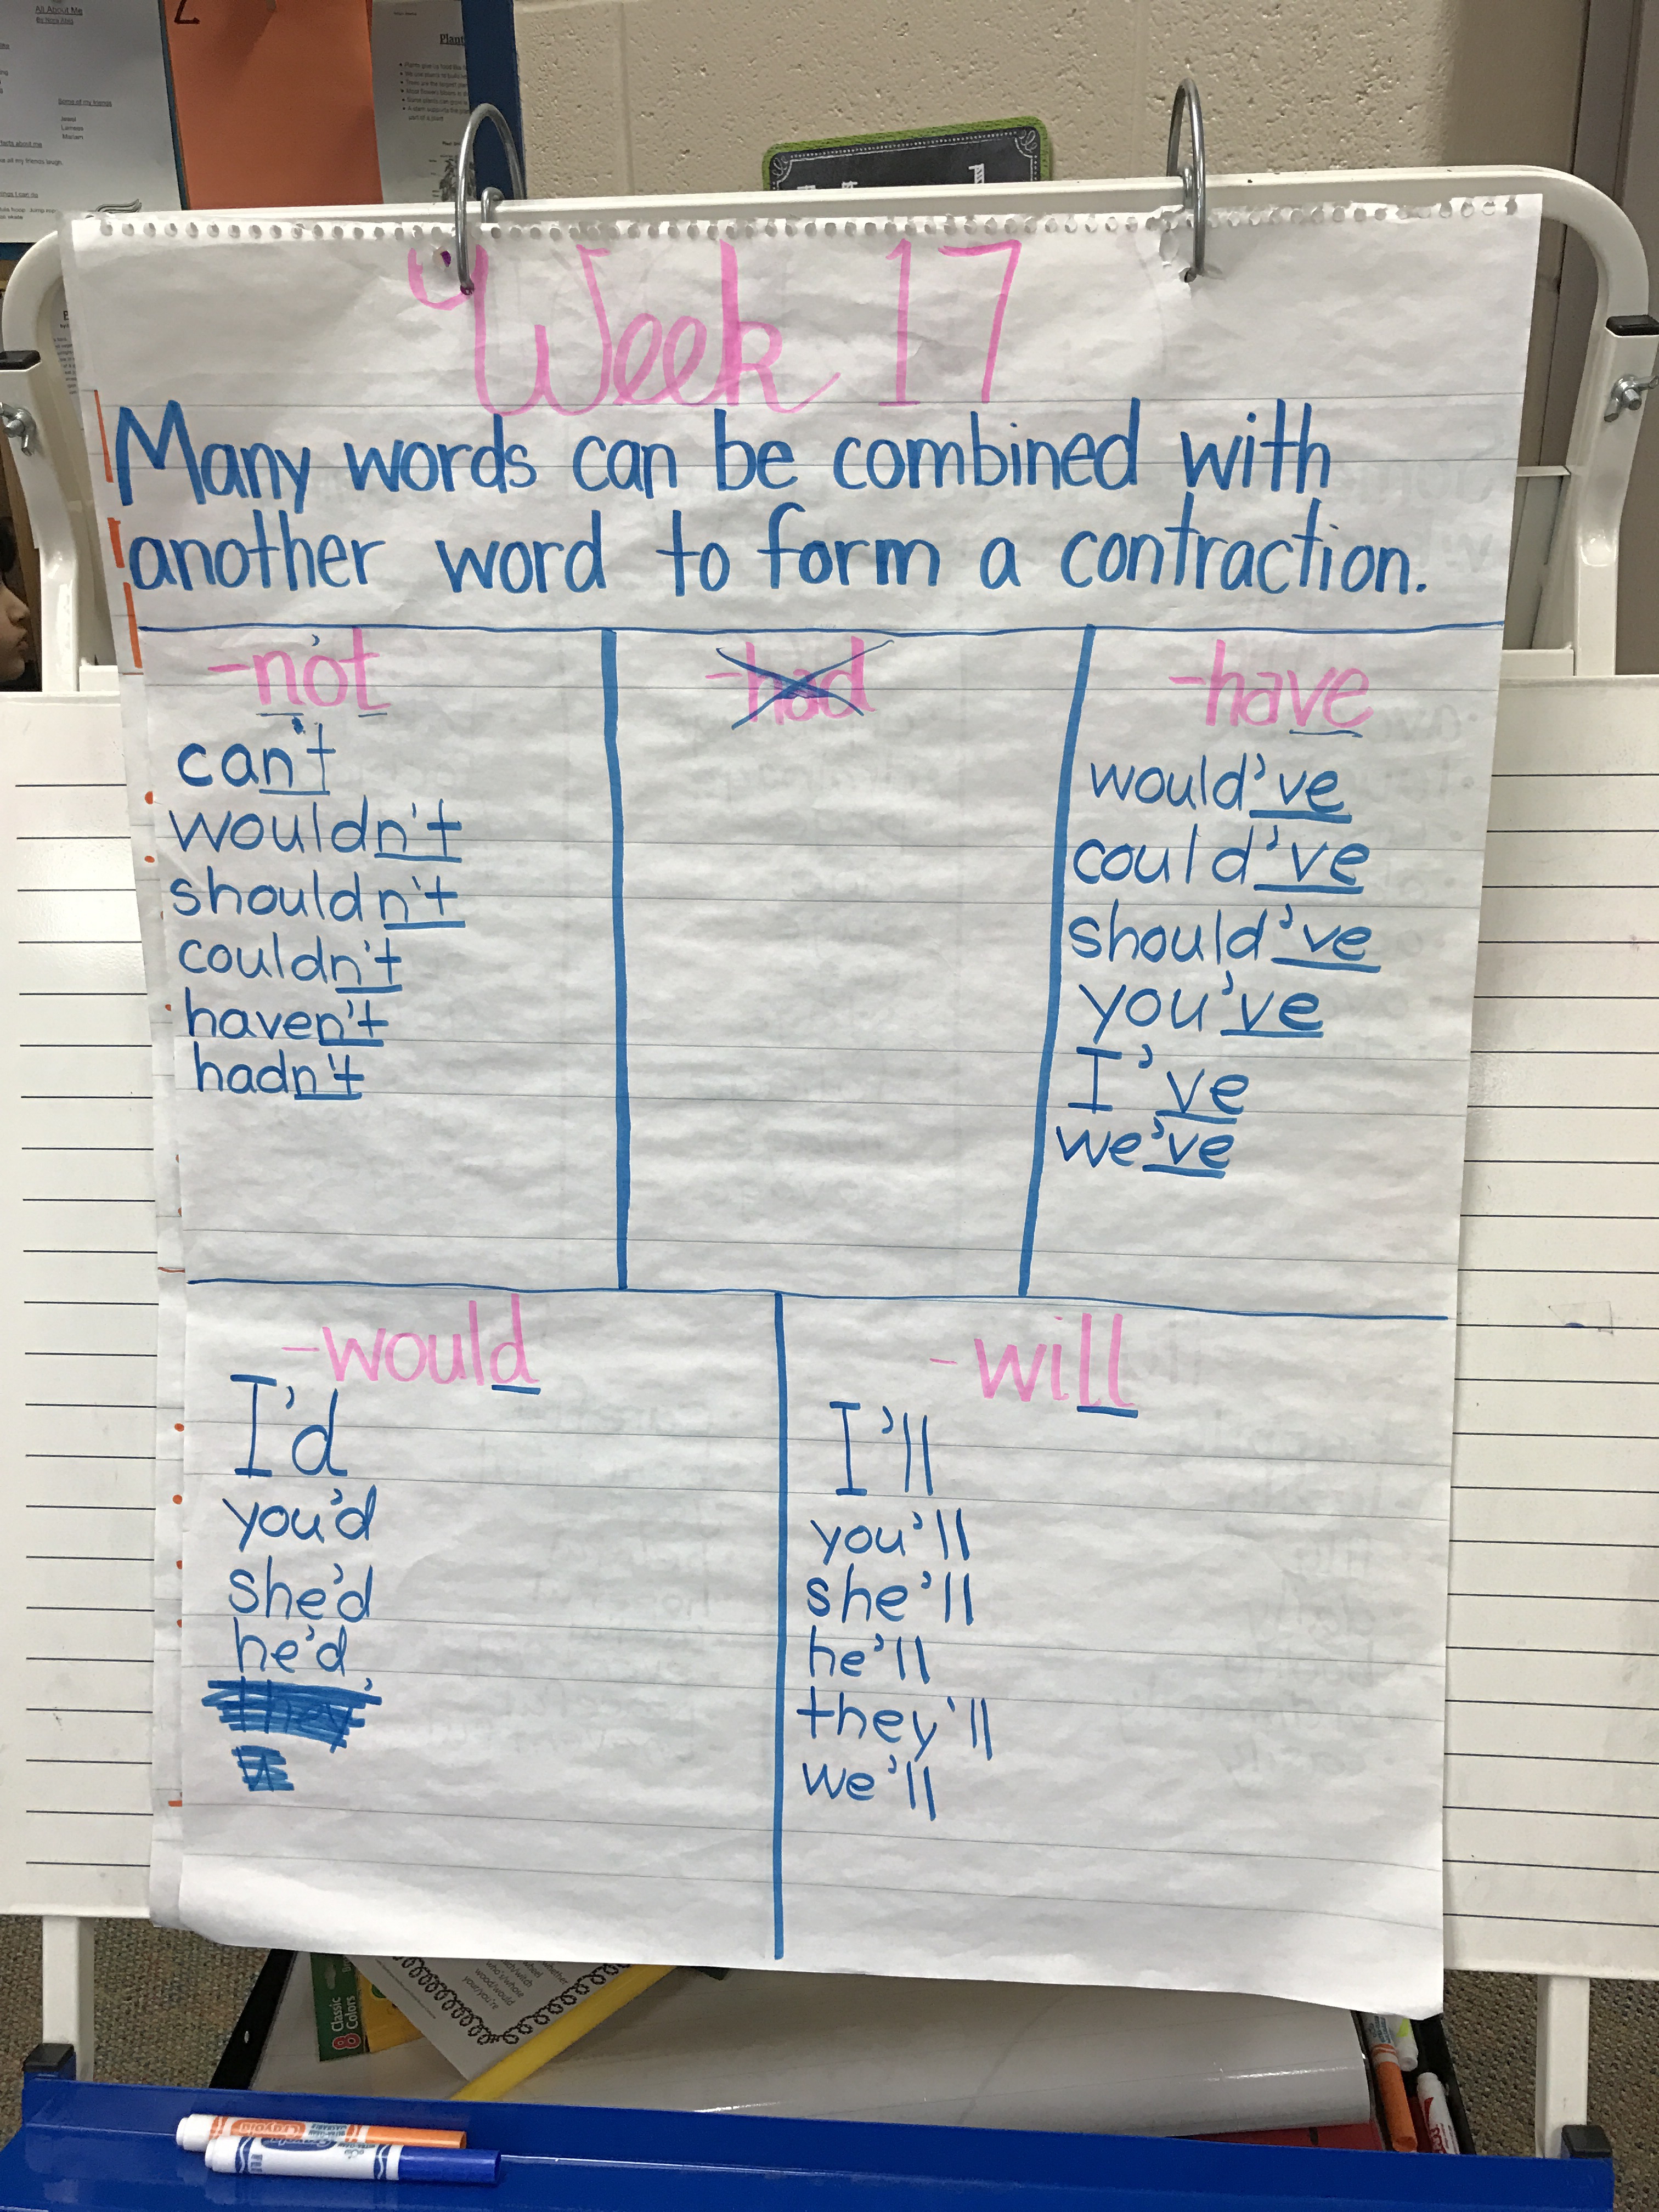 All About Me
Some of my friends
Plant
Week 17
Many words can be combined with
another word to form a contraction.
-not
can't
wouldn't
shouldn't
couldn't
haven't
hadn't
-had
-have
would've
could've
should've
you've
I've
we've
-would
I'd
you'd
she'd
he'd
-will
I'll
you'll
she'll
he'll
they'll
we'll
8 Classic
Colors
wood/would
your/you're
Crayola